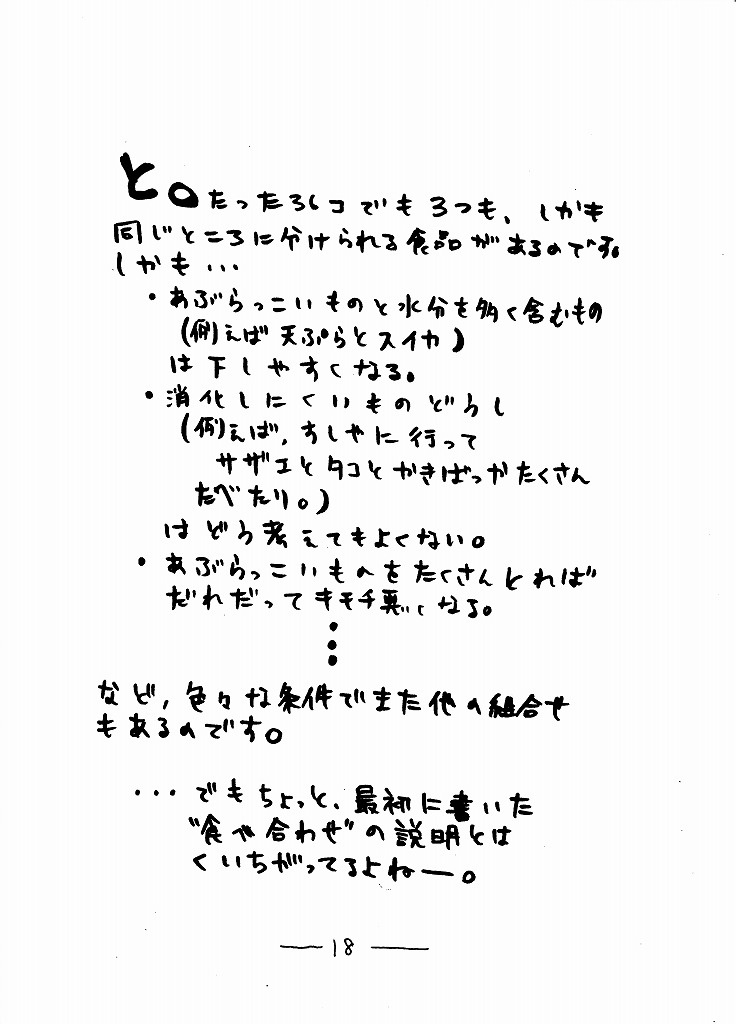 と。たった36コでも3つも、しかも
同じところに分けられる食品があるのです。
しかも・・・
・あぶらっこいものと水分を多く含むもの
(例えば天ぷらとスイカ)
は下しやすくなる。
・消化しにくいものどうし
(例えば、すしやに行って
サザエとタコとかきばっかたくさん
たべたり。)
はどう考えてもよくない。
・あぶらっこいものをたくさんとれば
だれだってキモチ悪くなる。
⋮
など、色々な条件でまた他の組合せ
もあるのです。
・・・でもちょっと、最初に書いた
"食べ合わせ"の説明とは
くいちがってるよねー。
— 18 —